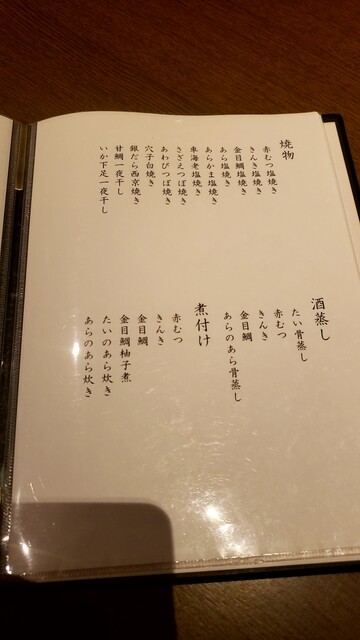 焼物
赤むつ塩焼き
きんき塩焼き
金目鯛塩焼き
あら塩焼き
あらかま塩焼き
車海老塩焼き
さざえつぼ焼き
あわびつぼ焼き
穴子白焼き
銀だら西京焼き
甘鯛一夜干し
いか下足一夜干し
酒蒸し
たい骨蒸し
赤むつ
きんき
金目鯛
あらのあら骨蒸し
煮付け
赤むつ
きんき
金目鯛
金目鯛柚子煮
たいのあら炊き
あらのあら炊き